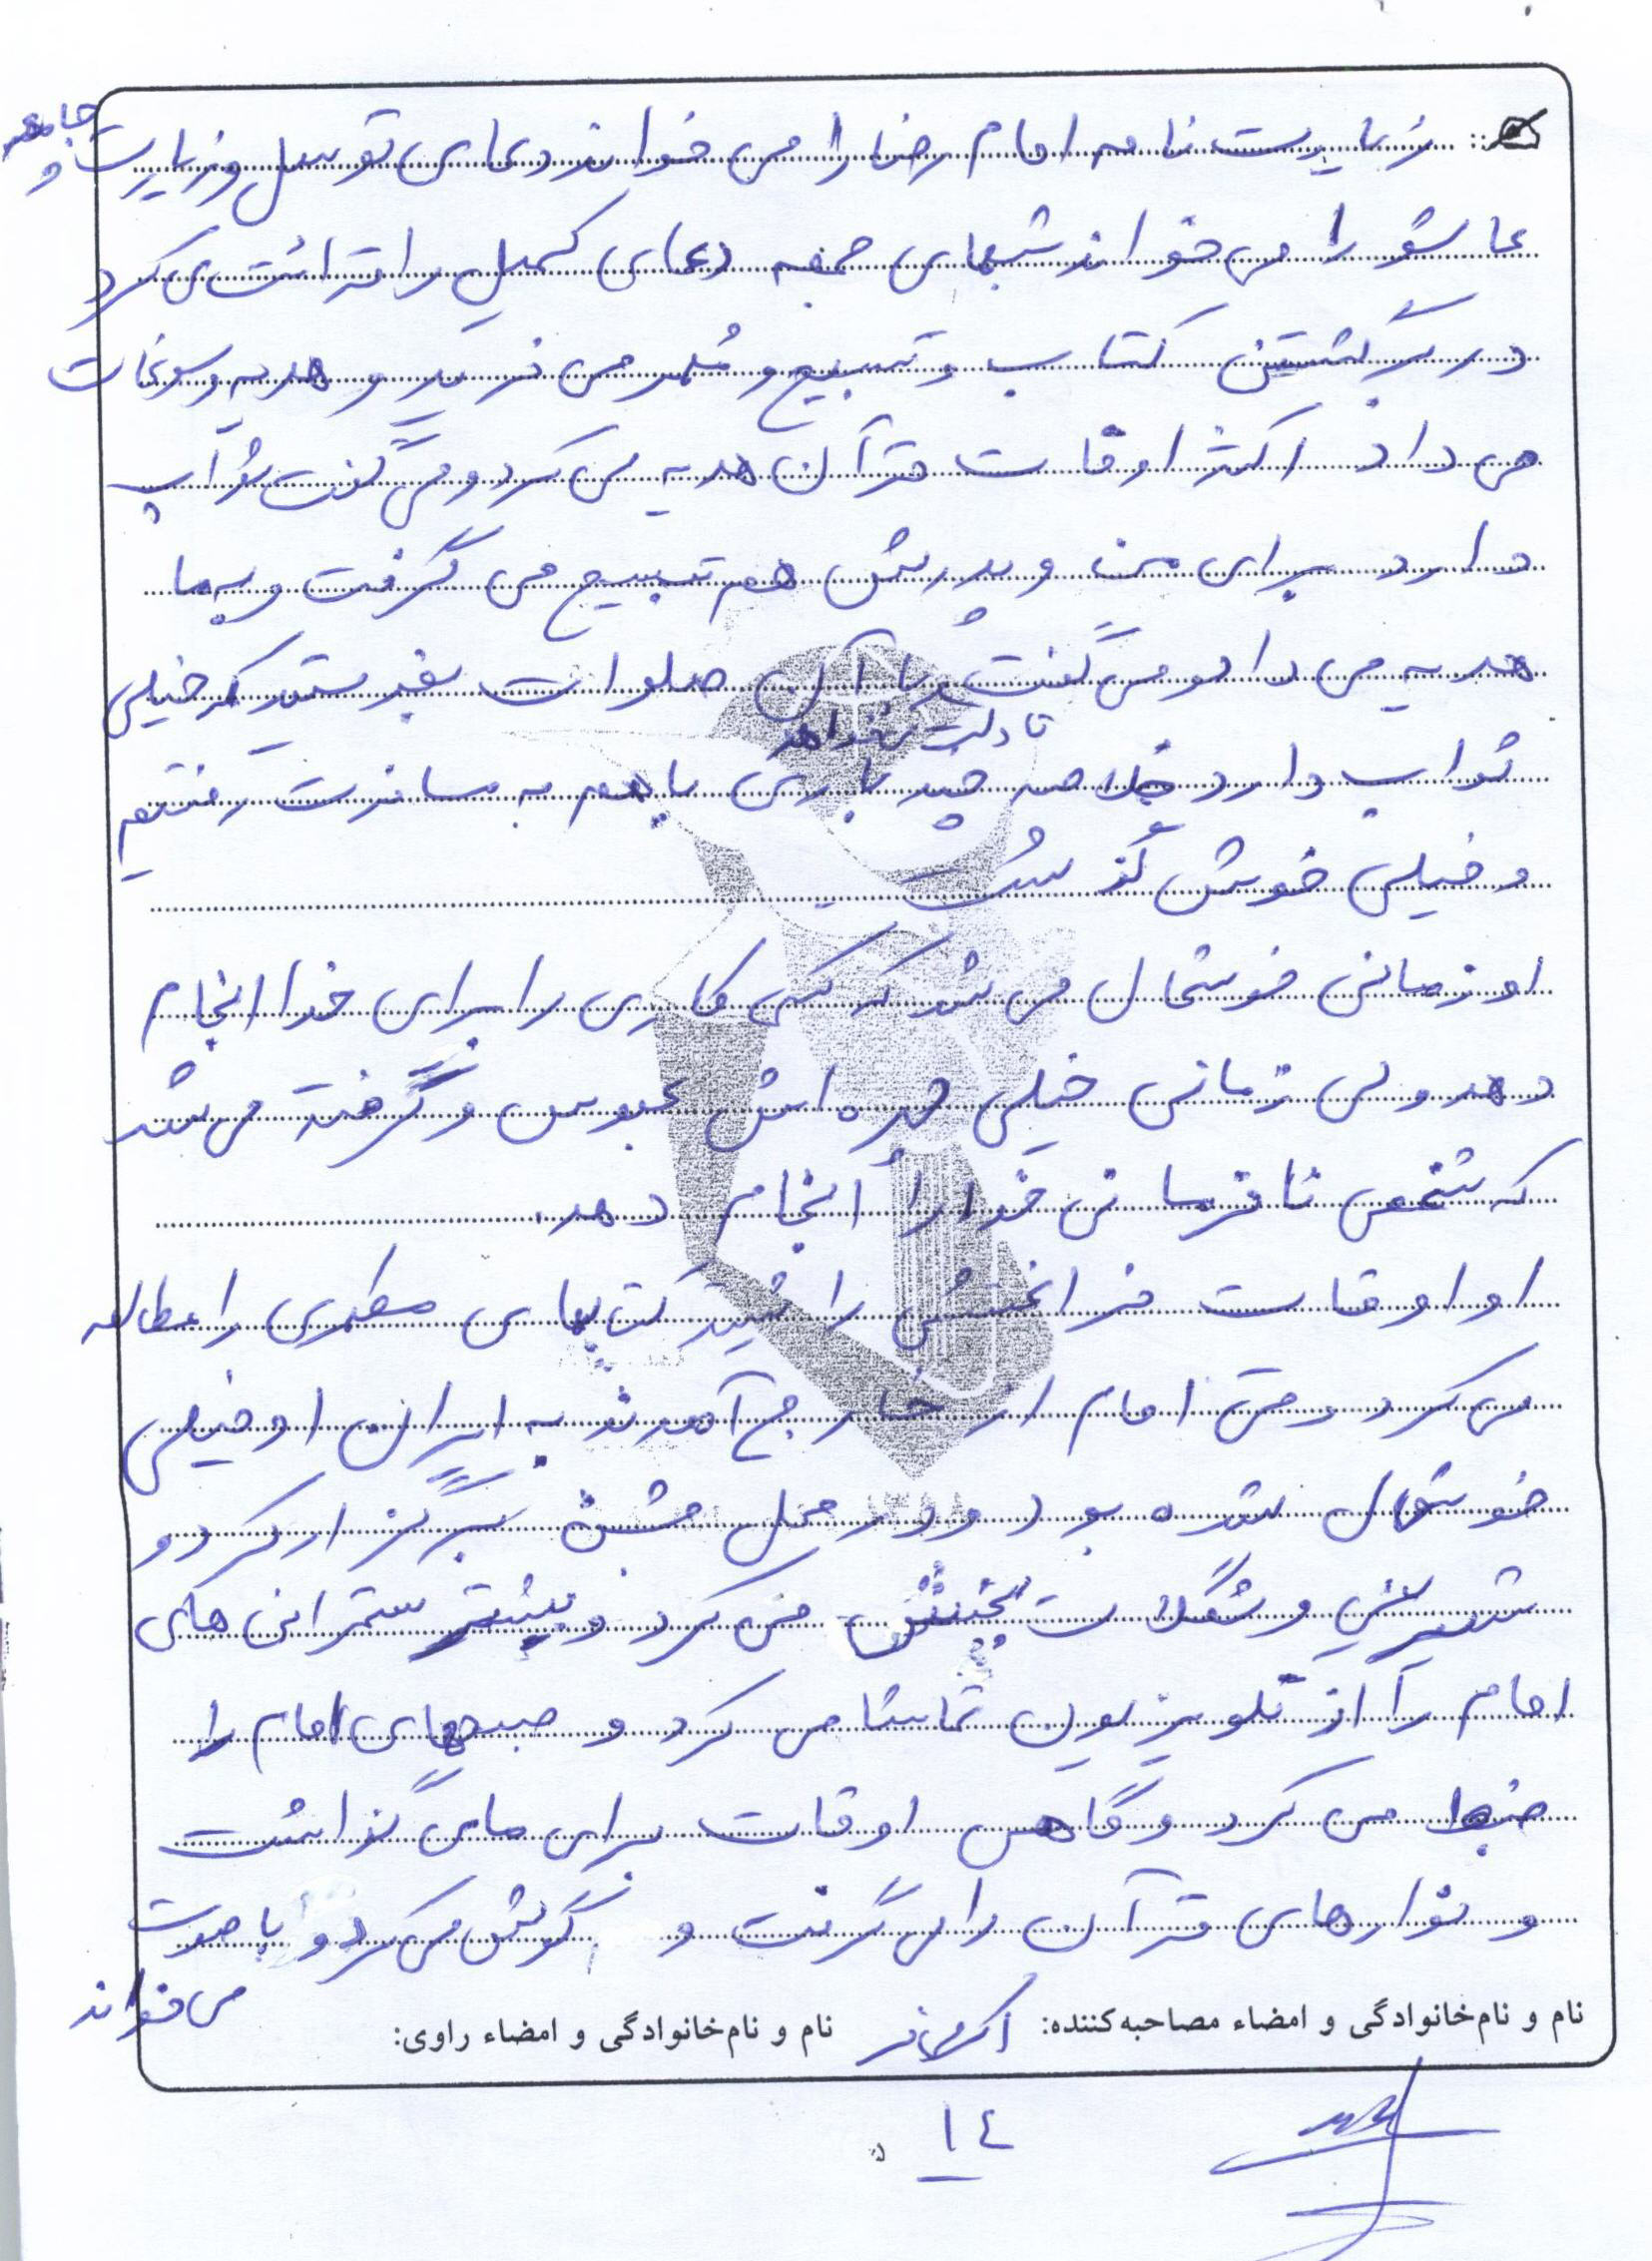 زیارت نامه امام رضا را می خواند دعای توسل و زیارت جامعه و
عاشورا می خواند شبهای جمعه دعای کمیل را قرائت می کرد
در برگشتن کتاب و تسبیح و مُهر می خرید و هدیه و سوغات
می داد اکثر اوقات قرآن هدیه می کرد و می گفت ثواب
دارد برای من و پدرش هم تسبیح می گرفت و به ما
هدیه می داد و می گفت با آن صلوات بفرستید که خیلی
تا دلت بخواهد
ثواب دارد خلاصه چند باری با هم به مسافرت رفتیم
و خیلی خوش گذشت
او زمانی خوشحال می شد که کسی کاری را برای خدا انجام
دهد ولی زمانی خیلی چهره اش عبوس و گرفته می شد
که شخص نافرمانی خدا را انجام دهد.
او اوقات فراغتش را کتابهای مطهری را مطالعه
می کرد وقتی امام از خارج آمدند به ایران او خیلی
خوشحال شده بود و در محل جشن برگزار کرد و
شیرینی و شکلات پخش می کرد و بیشتر سخنرانی های
امام را از تلویزیون تماشا می کرد و صحبهای امام را
ضبط می کرد و گاهی اوقات برای ما می گذاشت
و نوارهای قرآن را می گرفت و گوش می کرد و با صوت
می خواند
نام و نام‌خانوادگی و امضاء مصاحبه‌کننده:
نام و نام‌خانوادگی و امضاء راوی:
١٤